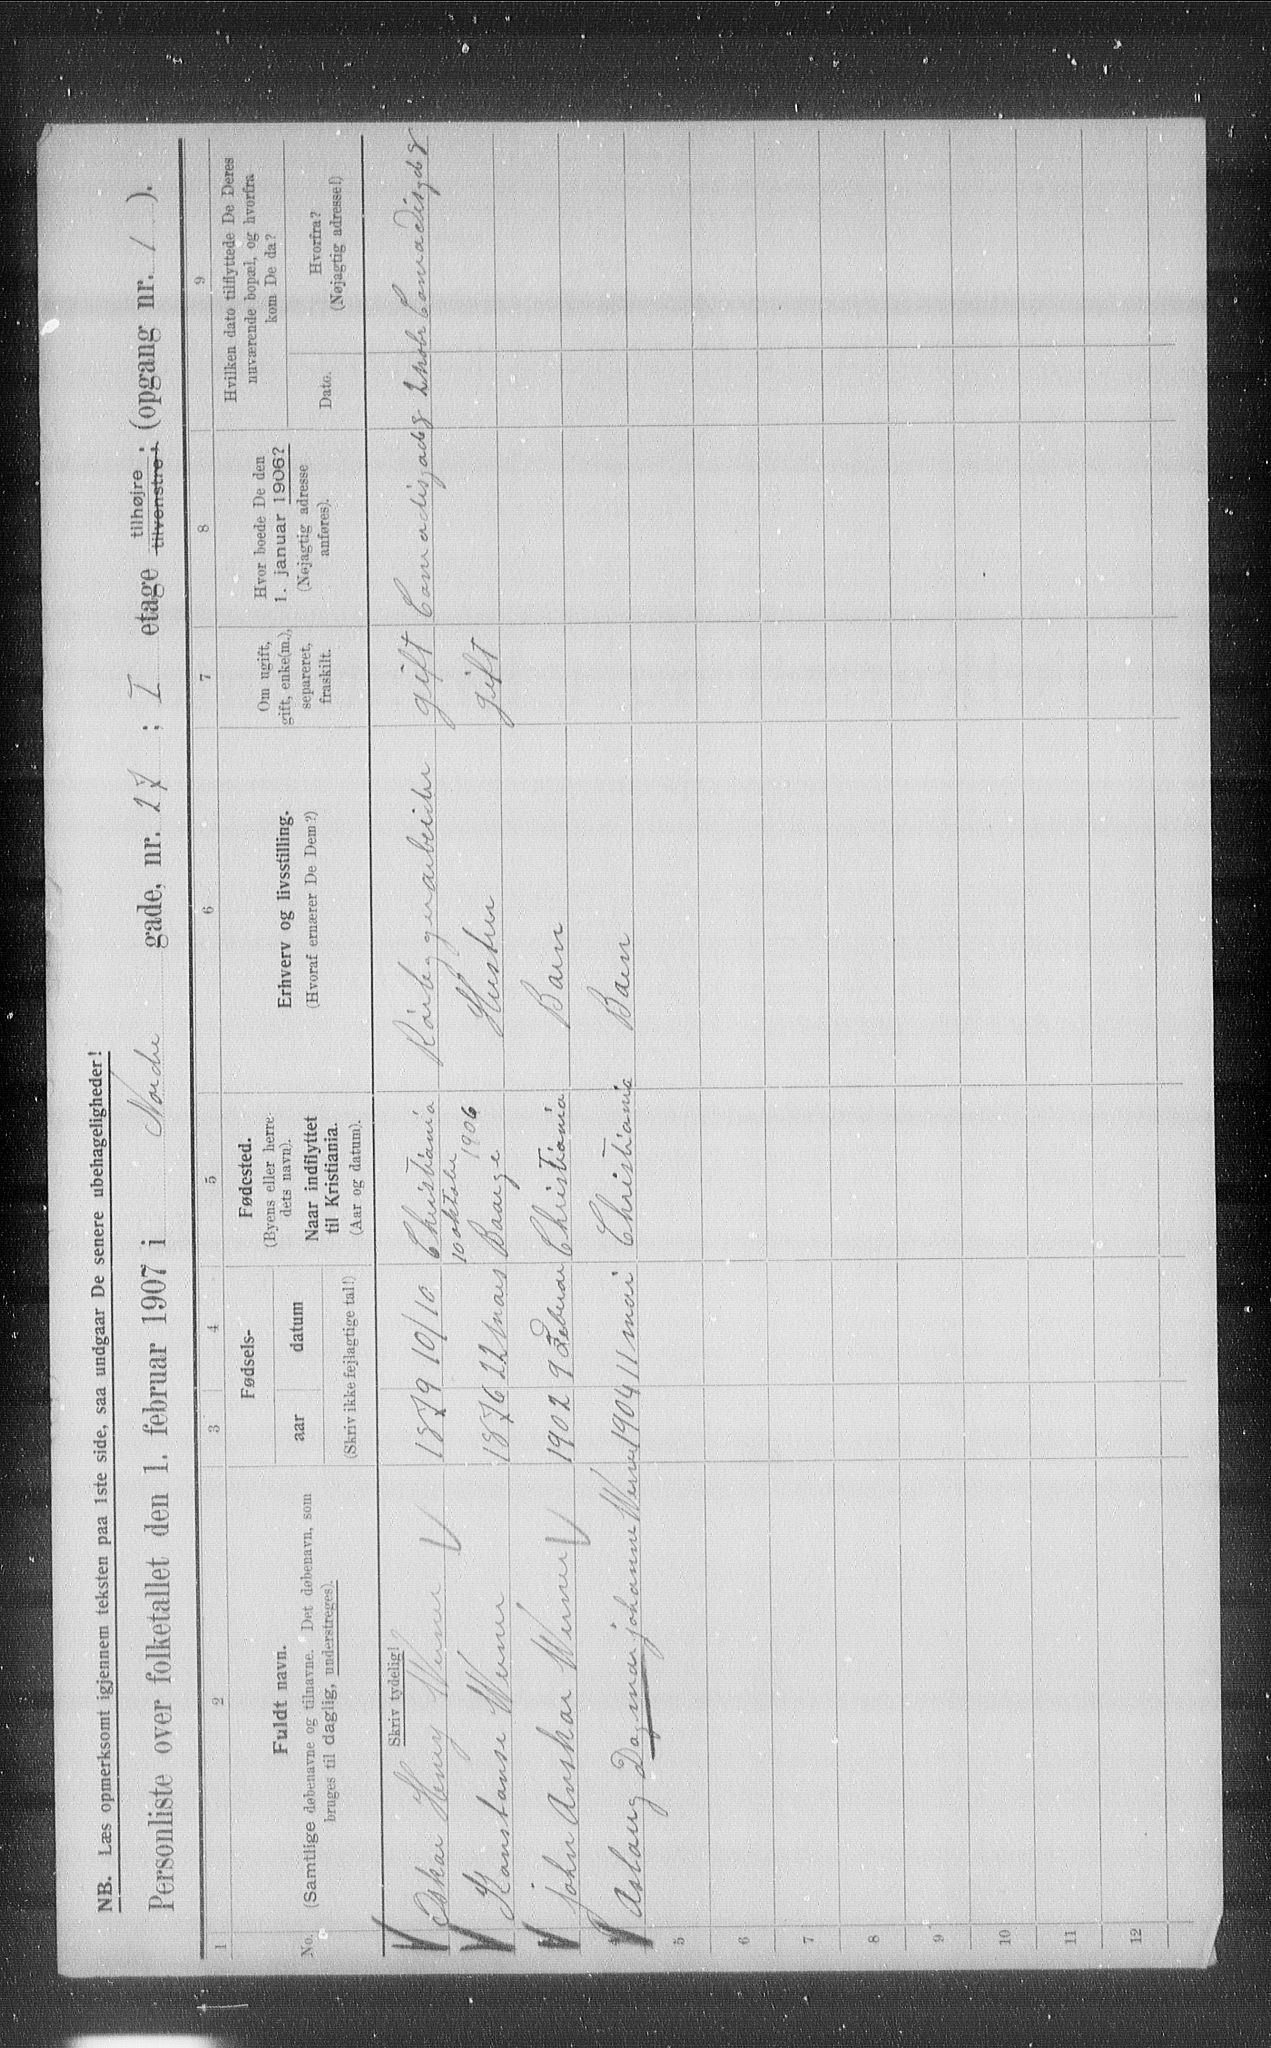 NB. Læs opmerksomt igjennem teksten paa 1ste side, saa undgaar De senere ubehageligheder!
Personliste over folketallet den 1. februar 1907 i Nordre gade, nr. 27; I etage tilhøjre; tilvenstre; (opgang nr. 1).
1 2 3 4 5 6 7 8 9
No.
Fuldt navn.
(Samtlige døbenavne og tilnavne. Det døbenavn, som
bruges til daglig, understreges).
Fødsels-
aar datum
(Skriv ikke fejlagtige tal!)
Fødested.
(Byens eller herre-
dets navn).
Naar indflyttet
til Kristiania.
(Aar og datum).
Erhverv og livsstilling.
(Hvoraf ernærer De Dem?)
Om ugift,
gift, enke(m.),
separeret,
fraskilt.
Hvor boede De den
1. januar 1906?
(Nøjagtig adresse
anføres).
Hvilken dato tilflyttede De Deres
nuværende bopæl, og hvorfra
kom De da?
Dato.
Hvorfra?
(Nøjagtig adresse!)
Skriv tydelig!
Oskar Henry Werner 1879 10/10 Christiania gift
10 oktober 1906
Konstanse Werner 1876 22 mars Hustru gift
John Anskar Werner 1902 9 Februar Christiania Barn
4 Aslaug Dagmar johanne Werner 1904 11 mai Christiania Barn
5
6
7
8
9
10
11
12